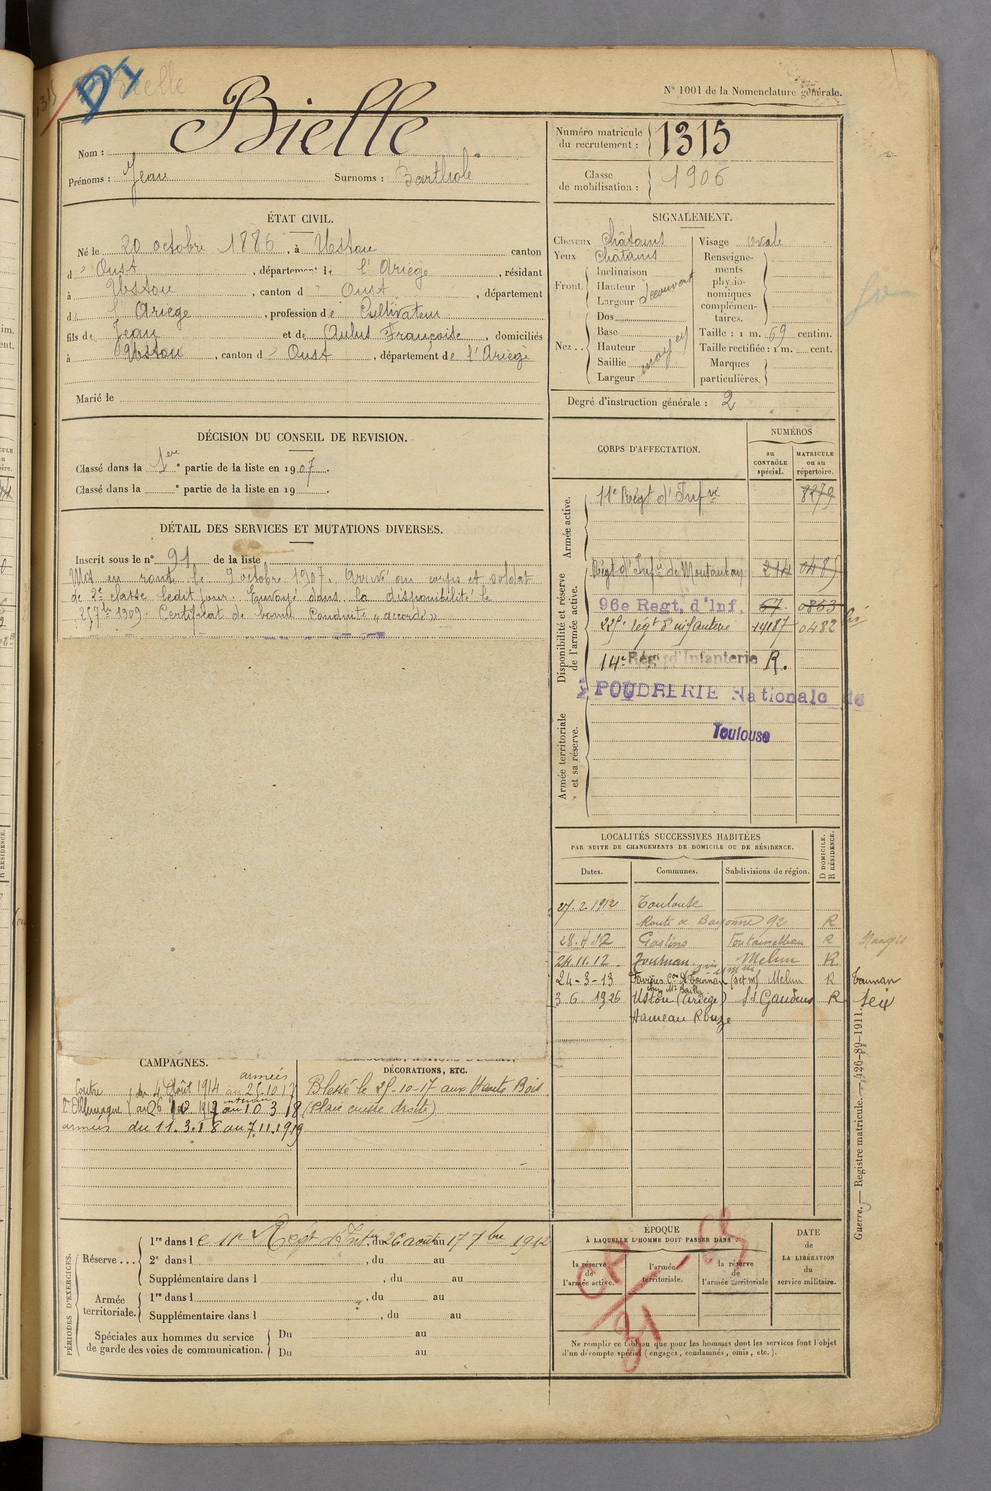 Bielle
N° 1001 de la Nomenclature générale.
Nom : Bielle
Prénoms : Jean Surnoms : Barthole
Numéro matricule du recrutement : 1315
Classe de mobilisation : 1906
ÉTAT CIVIL.
Né le 20 octobre 1886, à Ustou canton
d' Oust, département de l'Ariège, résidant
à Ustou, canton d' Oust, département
de l'Ariège, profession de Cultivateur
fils de Jean et de Aulus Françoise, domiciliés
à Ustou, canton d' Oust, département de l'Ariège
Marié le
SIGNALEMENT.
Cheveux châtains
Yeux châtains
Front. Inclinaison
Hauteur
Largeur découvert
Nez.. Dos
Base
Hauteur
Saillie
Largeur moyen
Visage ovale
Renseignements physionomiques complémentaires.
Taille : 1 m. 69 centim.
Taille rectifiée : 1 m. cent.
Marques particulières.
Degré d'instruction générale : 2
DÉCISION DU CONSEIL DE REVISION.
Classé dans la 1ere partie de la liste en 1907.
Classé dans la e partie de la liste en 19 .
DÉTAIL DES SERVICES ET MUTATIONS DIVERSES.
Inscrit sous le n° 91 de la liste
Mis en route le 9 octobre 1907. Arrivé au corps et soldat
de 2e classe ledit jour. Envoyé dans la disponibilité le
25 7bre 1909. Certificat de bonne conduite "accordé"
CORPS D'AFFECTATION.
NUMÉROS
au CONTRÔLE spécial.
MATRICULE ou au répertoire.
Armée active.
11e Régt d'Infie 8279
Disponibilité et réserve de l'armée active.
Régt d'Infie de Montauban 214 0485
96e Regt. d'Inf. 67 0863
225e régt d'infanterie 14187 0482 bis
14e Rég. d'Infanterie R.
POUDRERIE Nationale de
Toulouse
Armée territoriale et sa réserve.
LOCALITÉS SUCCESSIVES HABITÉES
PAR SUITE DE CHANGEMENTS DE DOMICILE OU DE RÉSIDENCE.
Dates. Communes. Subdivisions de région. D DOMICILE. R RÉSIDENCE.
27.2.1912 Toulouse
Route de Bayonne 92 R
28.4.12 Gastins Fontainebleau R Nangis
24.11.12 Tournan Melun R
24-3-13 Favières Con de Tournan (S et M) Melun R Tournan
3 6. 1926 Ustou (Ariège) St Gaudens R Seix
Hameau Rouze
CAMPAGNES.
Contre l'Allemagne
armées
du 4 Août 1914 au 25.10.17
intérieur
au 10 3 18
armées du 11.3.18 au 7.11.1919
DÉCORATIONS, ETC.
Blessé le 25-10-17 aux Hauts Bois
(plaie cuisse droite)
PÉRIODES D'EXERCICES.
Réserve... 1re dans le 11e Régt d'Infie, du 26 août au 17 7bre 1912
2e dans l , du au
Supplémentaire dans l , du au
Armée territoriale. 1re dans l , du au
Supplémentaire dans l , du au
Spéciales aux hommes du service de garde des voies de communication. Du au
Du au
ÉPOQUE
À LAQUELLE L'HOMME DOIT PASSER DANS :
la réserve de l'armée active.
l'armée territoriale.
la réserve de l'armée territoriale
DATE de LA LIBÉRATION du service militaire.
Ne remplir ce tableau que pour les hommes dont les services font l'objet
d'un décompte spécial (engagés, condamnés, omis, etc.).
Guerre. — Registre matricule. — 426-89-1911.